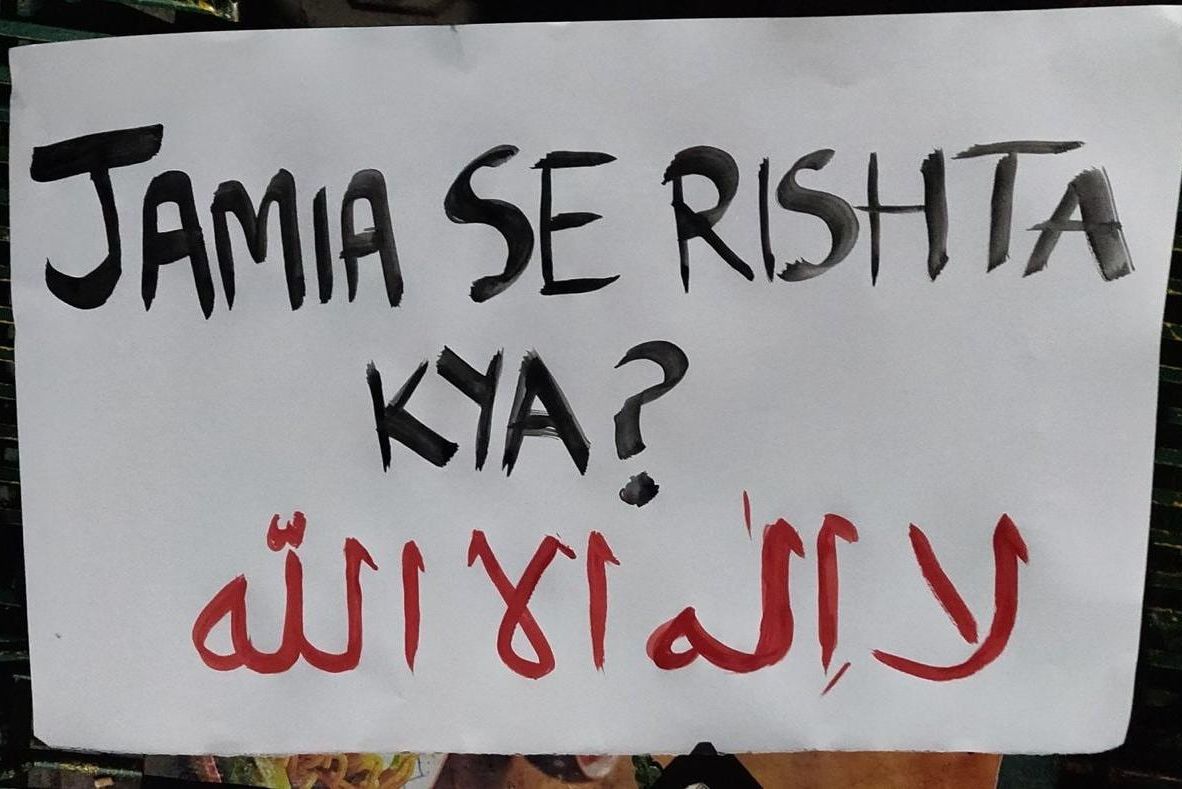 JAMIA SE RISHTA
KYA?
لا اِلٰه الا اللّه